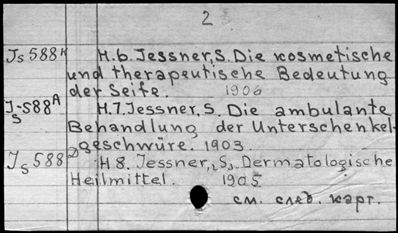 2
Js 588K H.6. Jessner, S. Die kosmetische
und therapeutische Bedeutung
der Seife. 1906
J-588A H.7. Jessner, S. Die ambulante
S Behandlung der Unterschenkel-
geschwüre. 1903.
Js 588D H 8. Jessner, S. Dermatologische
Heilmittel. 1905
см. след. карт.